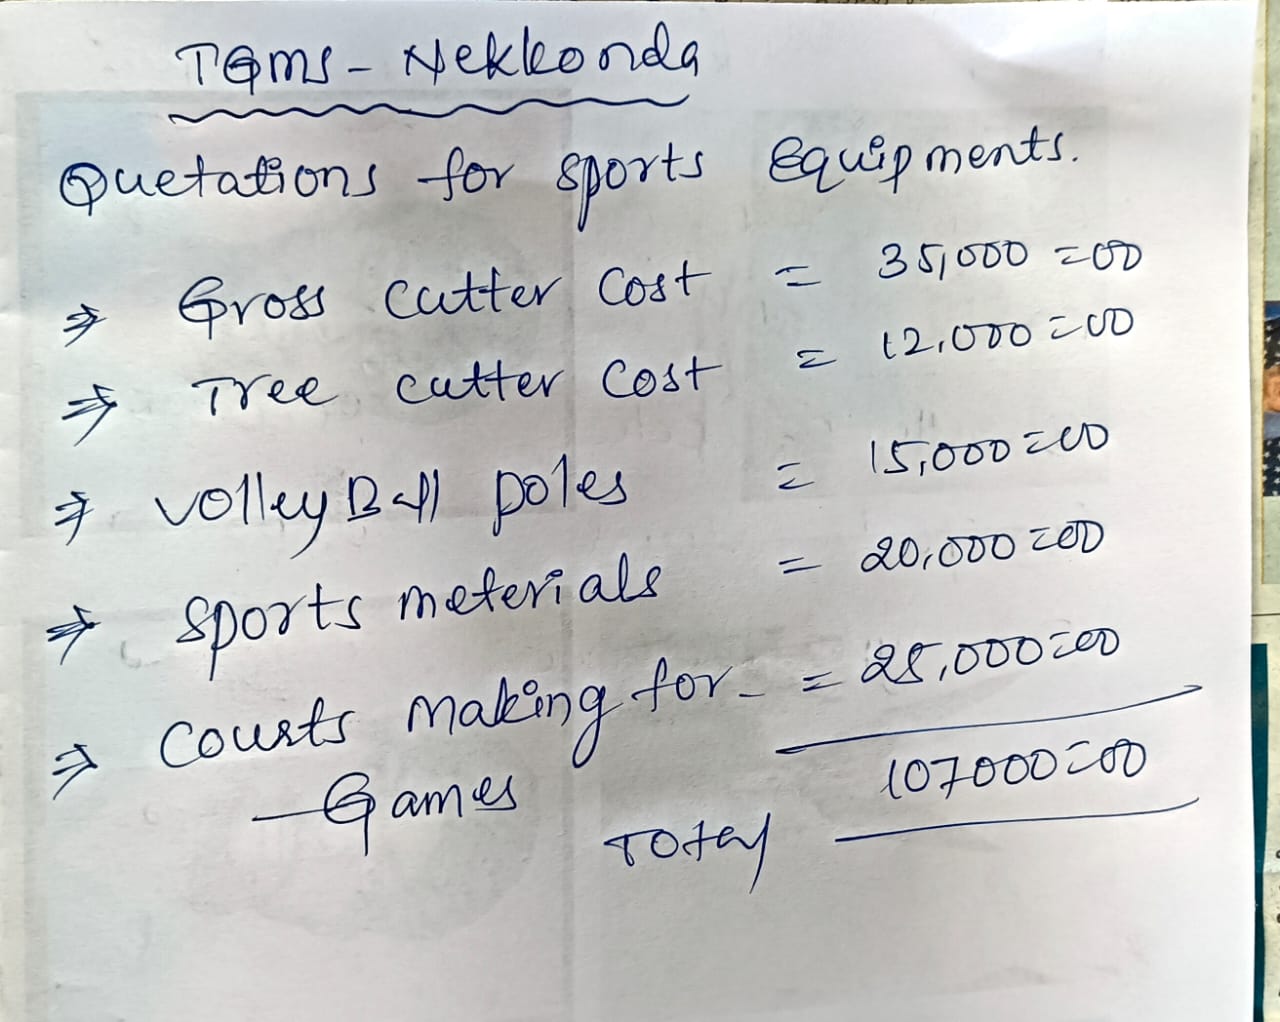 TGMS - Nekkonda
Quetations for sports Equipments.
⇒ Gross cutter cost = 35,000=00
⇒ Tree cutter cost = 12,000=00
⇒ volleyBall poles = 15,000=00
⇒ sports meterials = 20,000=00
⇒ Courts making for - = 25,000=00
— Games
107000=00
Total